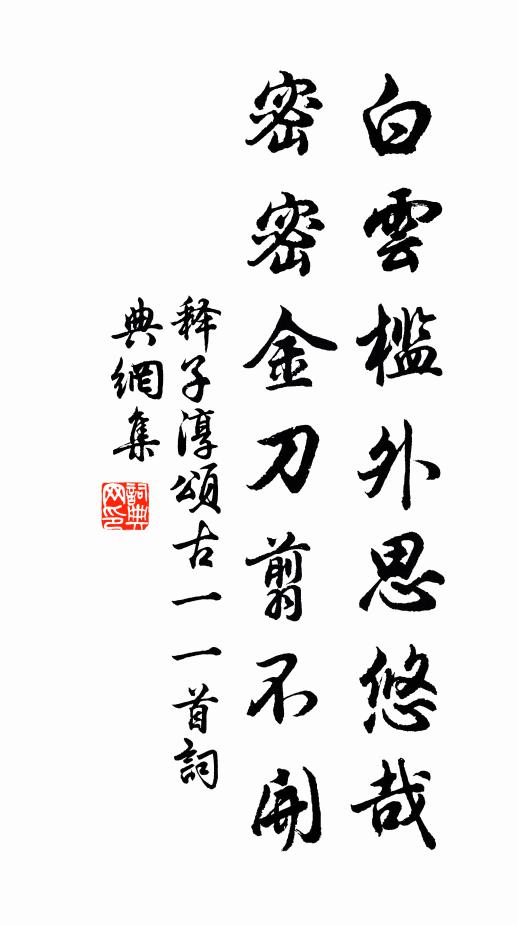 白雲檻外思悠哉
密密金刀剪不開
释子淳頌古一一首詞
典網集
詞典网印